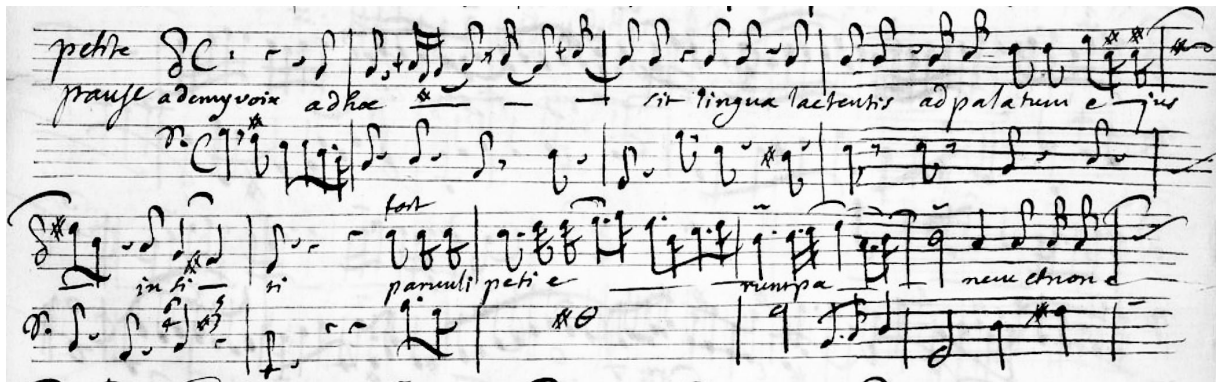 petite
pause ademyvoix adhæ sit lingua lactentis adpalatum e jus
fort
in si ti parvuli petie runt pa nem etnon e